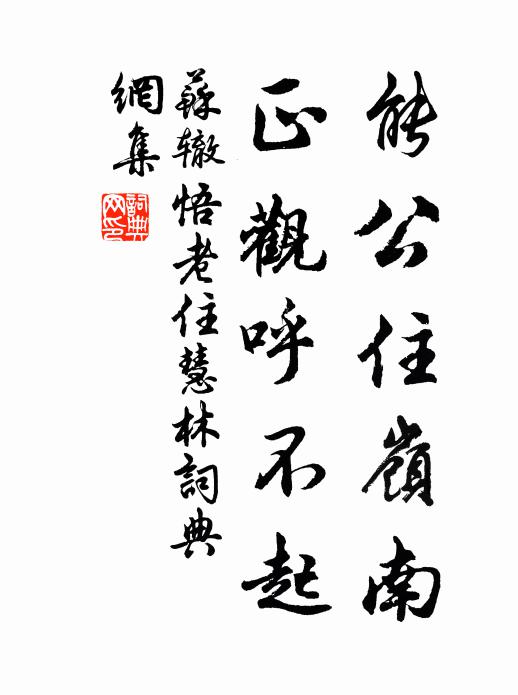 能公住嶺南
正觀呼不起
蘇轍悟老住慧林詞典
網集
詞典網印